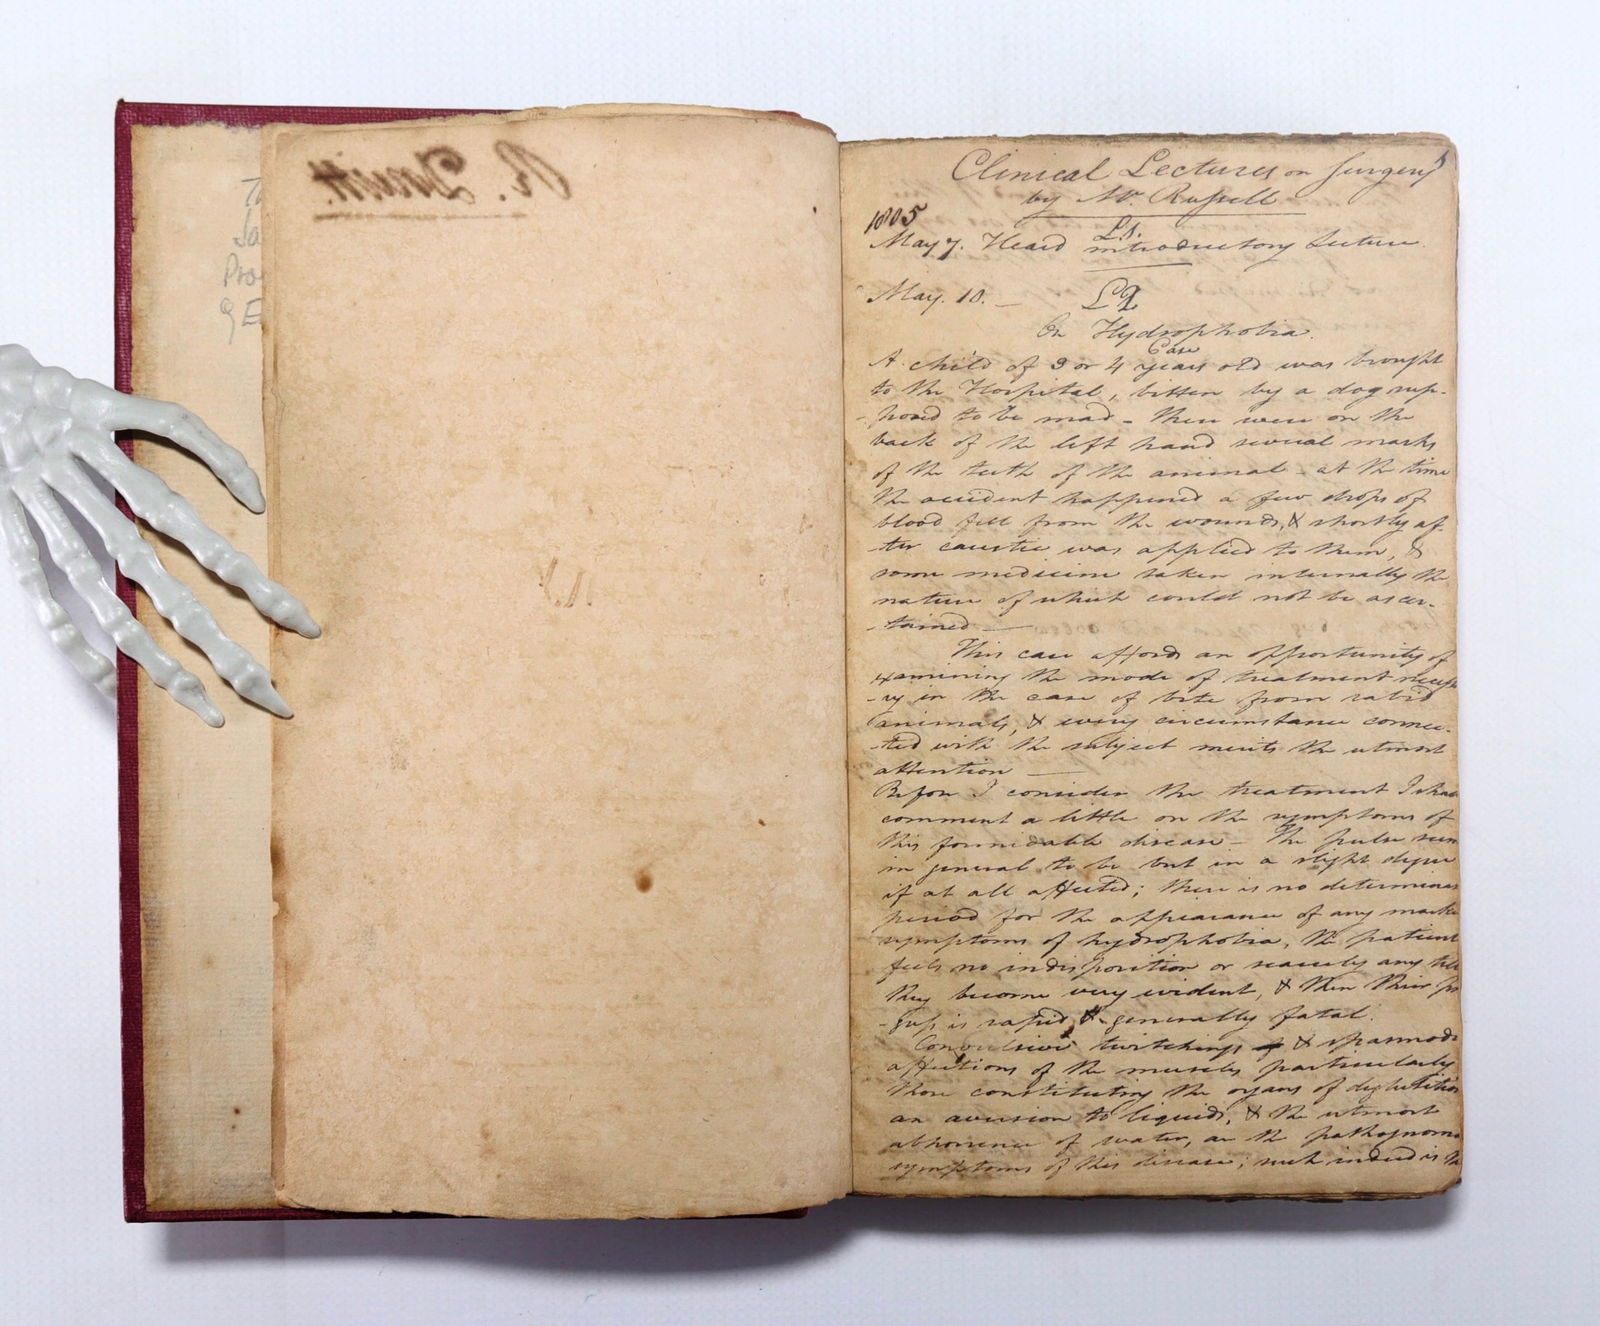 R. Druitt.
Clinical Lectures on Surgery
by Mr. Russell
1805
L1.
May 7. Heard introductory Lecture.
May. 10. — L2
On Hydrophobia.
Case
A child of 3 or 4 years old was brought
to the Hospital, bitten by a dog sup-
-posed to be mad - there were on the
back of the left hand several marks
of the teeth of the animal - at the time
the accident happened a few drops of
blood fell from the wounds, & shortly af-
-ter caustic was applied to them, &
some medicine taken internally the
nature of which could not be ascer-
-tained —
This case affords an opportunity of
examining the mode of treatment necess
-ry in the case of bite from rabid
animals, & every circumstance connec-
-ted with the subject merits the utmost
attention —
Before I consider the treatment I shall
comment a little on the symptoms of
this formidable disease - The pulse seem
in general to be but in a slight degree
if at all affected; there is no determinate
period for the appearance of any marked
symptoms of hydrophobia, the patient
feels no indisposition or scarcely any till
they become very evident, & then their pro
-gress is rapid & generally fatal.
Convulsive twitchings & spasmodic
affections of the muscles particularly
those constituting the organs of deglutition
an aversion to liquids, & the utmost
abhorrence of water, are the pathognomonic
symptoms of this disease; such indeed is the